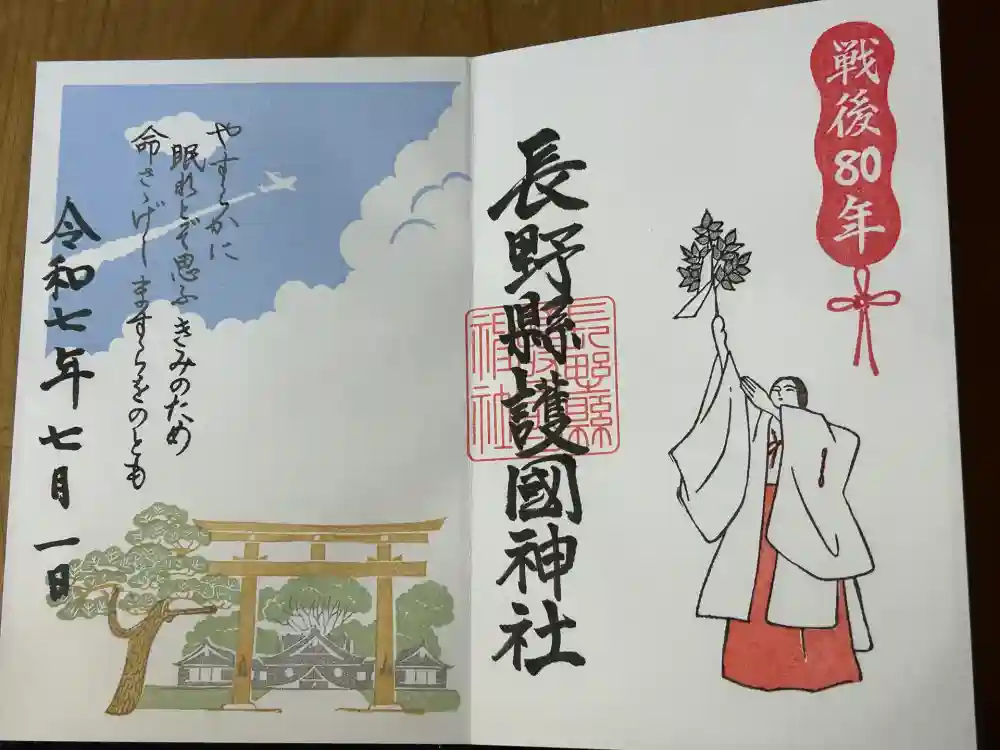 戦後80年
長野縣護國神社
長野縣護國神社
やすらかに
眠れとぞ思ふ きみのため
命さゝげし ますらをのとも
令和七年 七月一日